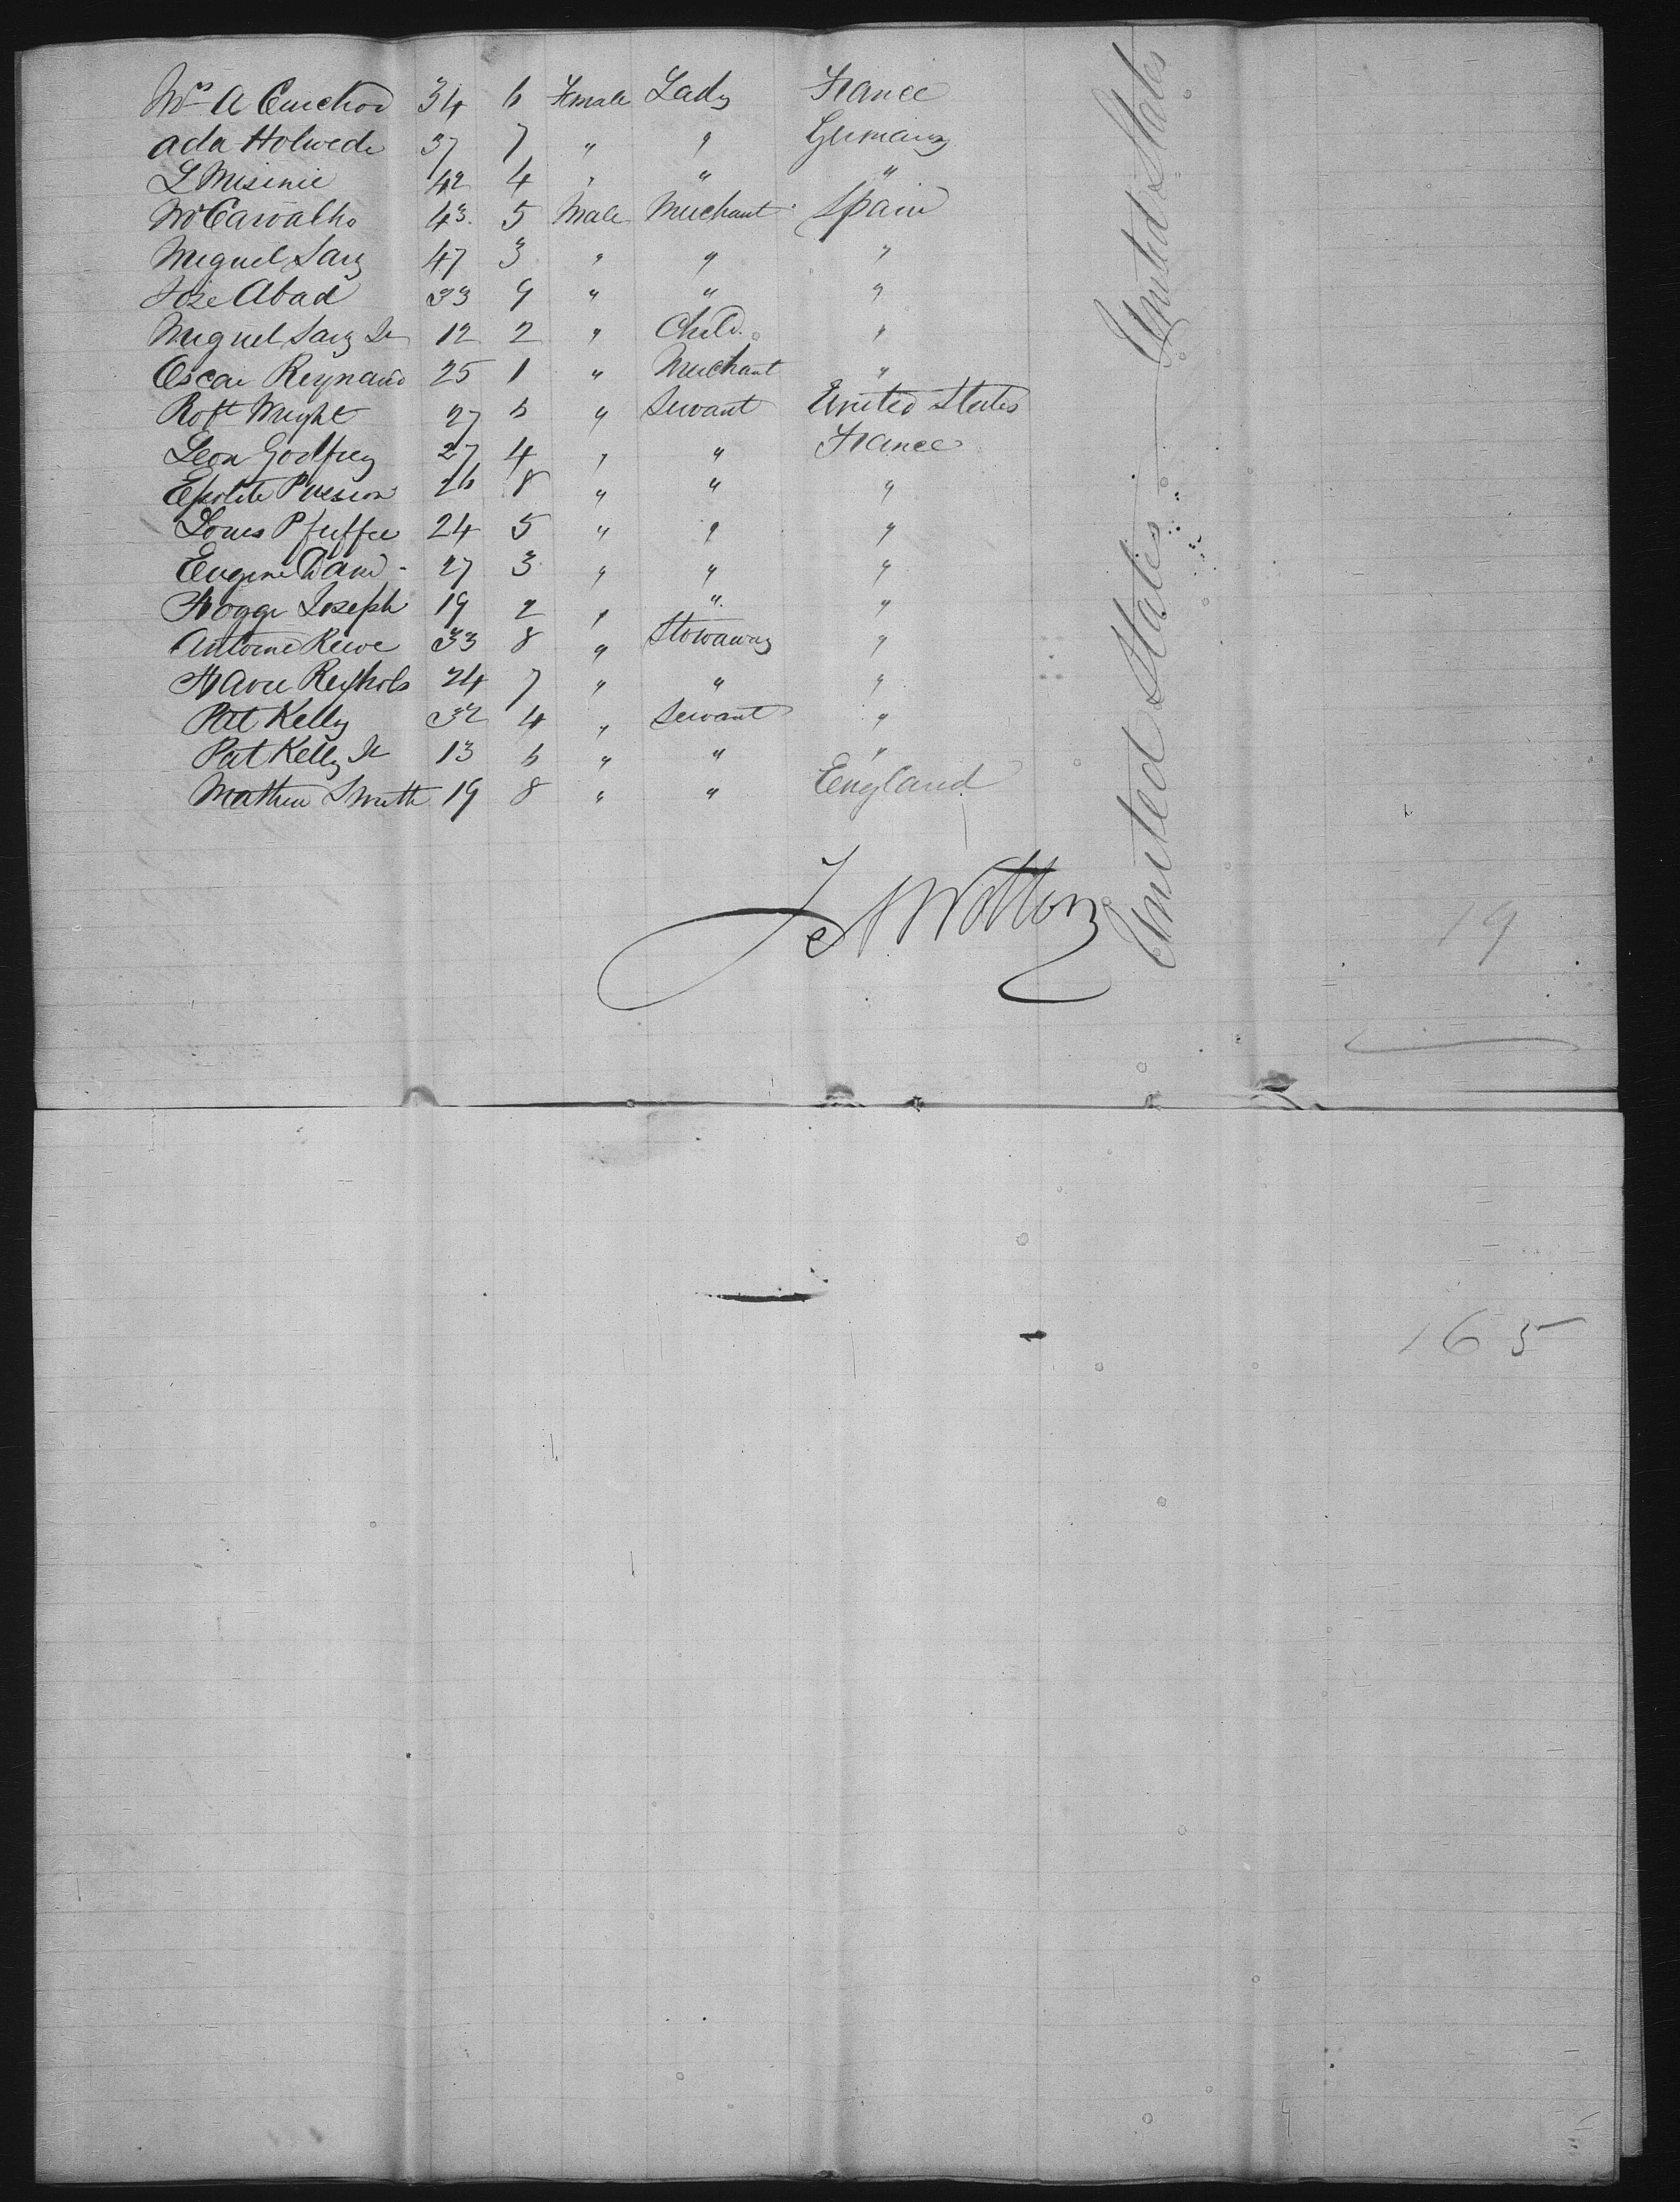 Mrs A Cuechod 34 6 Female Lady France
Ada Holwede 37 7 " " Germany
L Misinie 42 4 " " "
Mr Carvalho 43 5 Male Merchant Spain
Miguel Sarz 47 3 " " "
Jose Abad 33 9 " " "
Miguel Sarz Jr 12 2 " Child "
Oscar Reynaud 25 1 " Merchant "
Robt Wright 27 6 " Servant United States
Leon Godfrey 27 4 " " France
Epolite 26 8 " " "
Louis Pfeiffer 24 5 " " "
Eugene 27 3 " " "
Joseph 19 2 " " "
Antoine 33 8 " Stowaway "
24 7 " " "
Pat Kelly 32 4 " Servant "
Pat Kelly Jr 13 6 " " "
Mathew Smith 19 8 " " England
United States — United States
J A Wotton
19
165